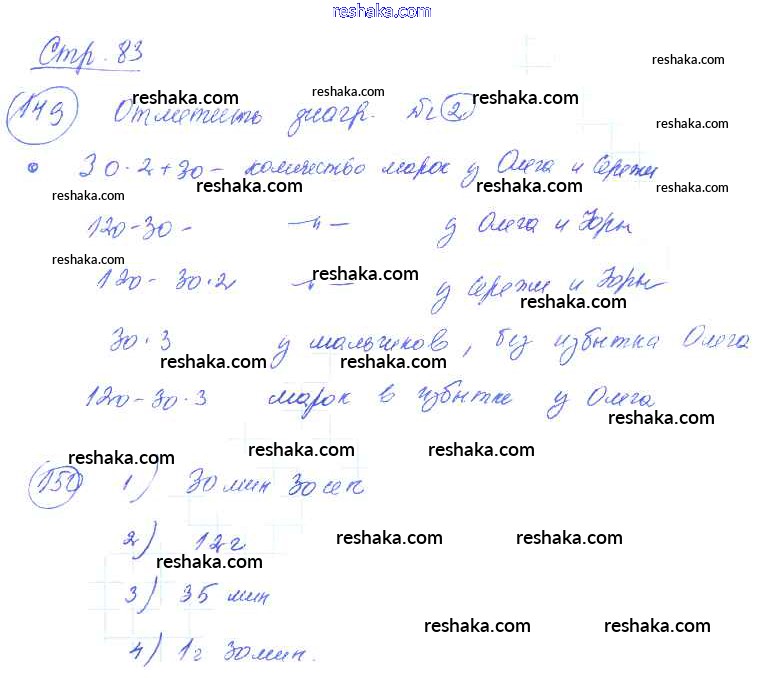 reshaka.com
Стр. 83
reshaka.com
149 Отметить диагр. № 2
reshaka.com reshaka.com reshaka.com
reshaka.com
30·2+30 – количество марок у Олега и Сережи
reshaka.com reshaka.com reshaka.com reshaka.com
120-30 – —"— у Олега и Юры
reshaka.com reshaka.com
120- 30·2 —"— у Сережи и Юры
reshaka.com
30·3 у мальчиков, без избытка Олега
reshaka.com reshaka.com
120-30·3 марок в избытке у Олега
reshaka.com
reshaka.com reshaka.com reshaka.com
150 1) 30 мин 30 сек
2) 12 г
reshaka.com reshaka.com
reshaka.com
3) 35 мин
reshaka.com reshaka.com
4) 1 г 30 мин.